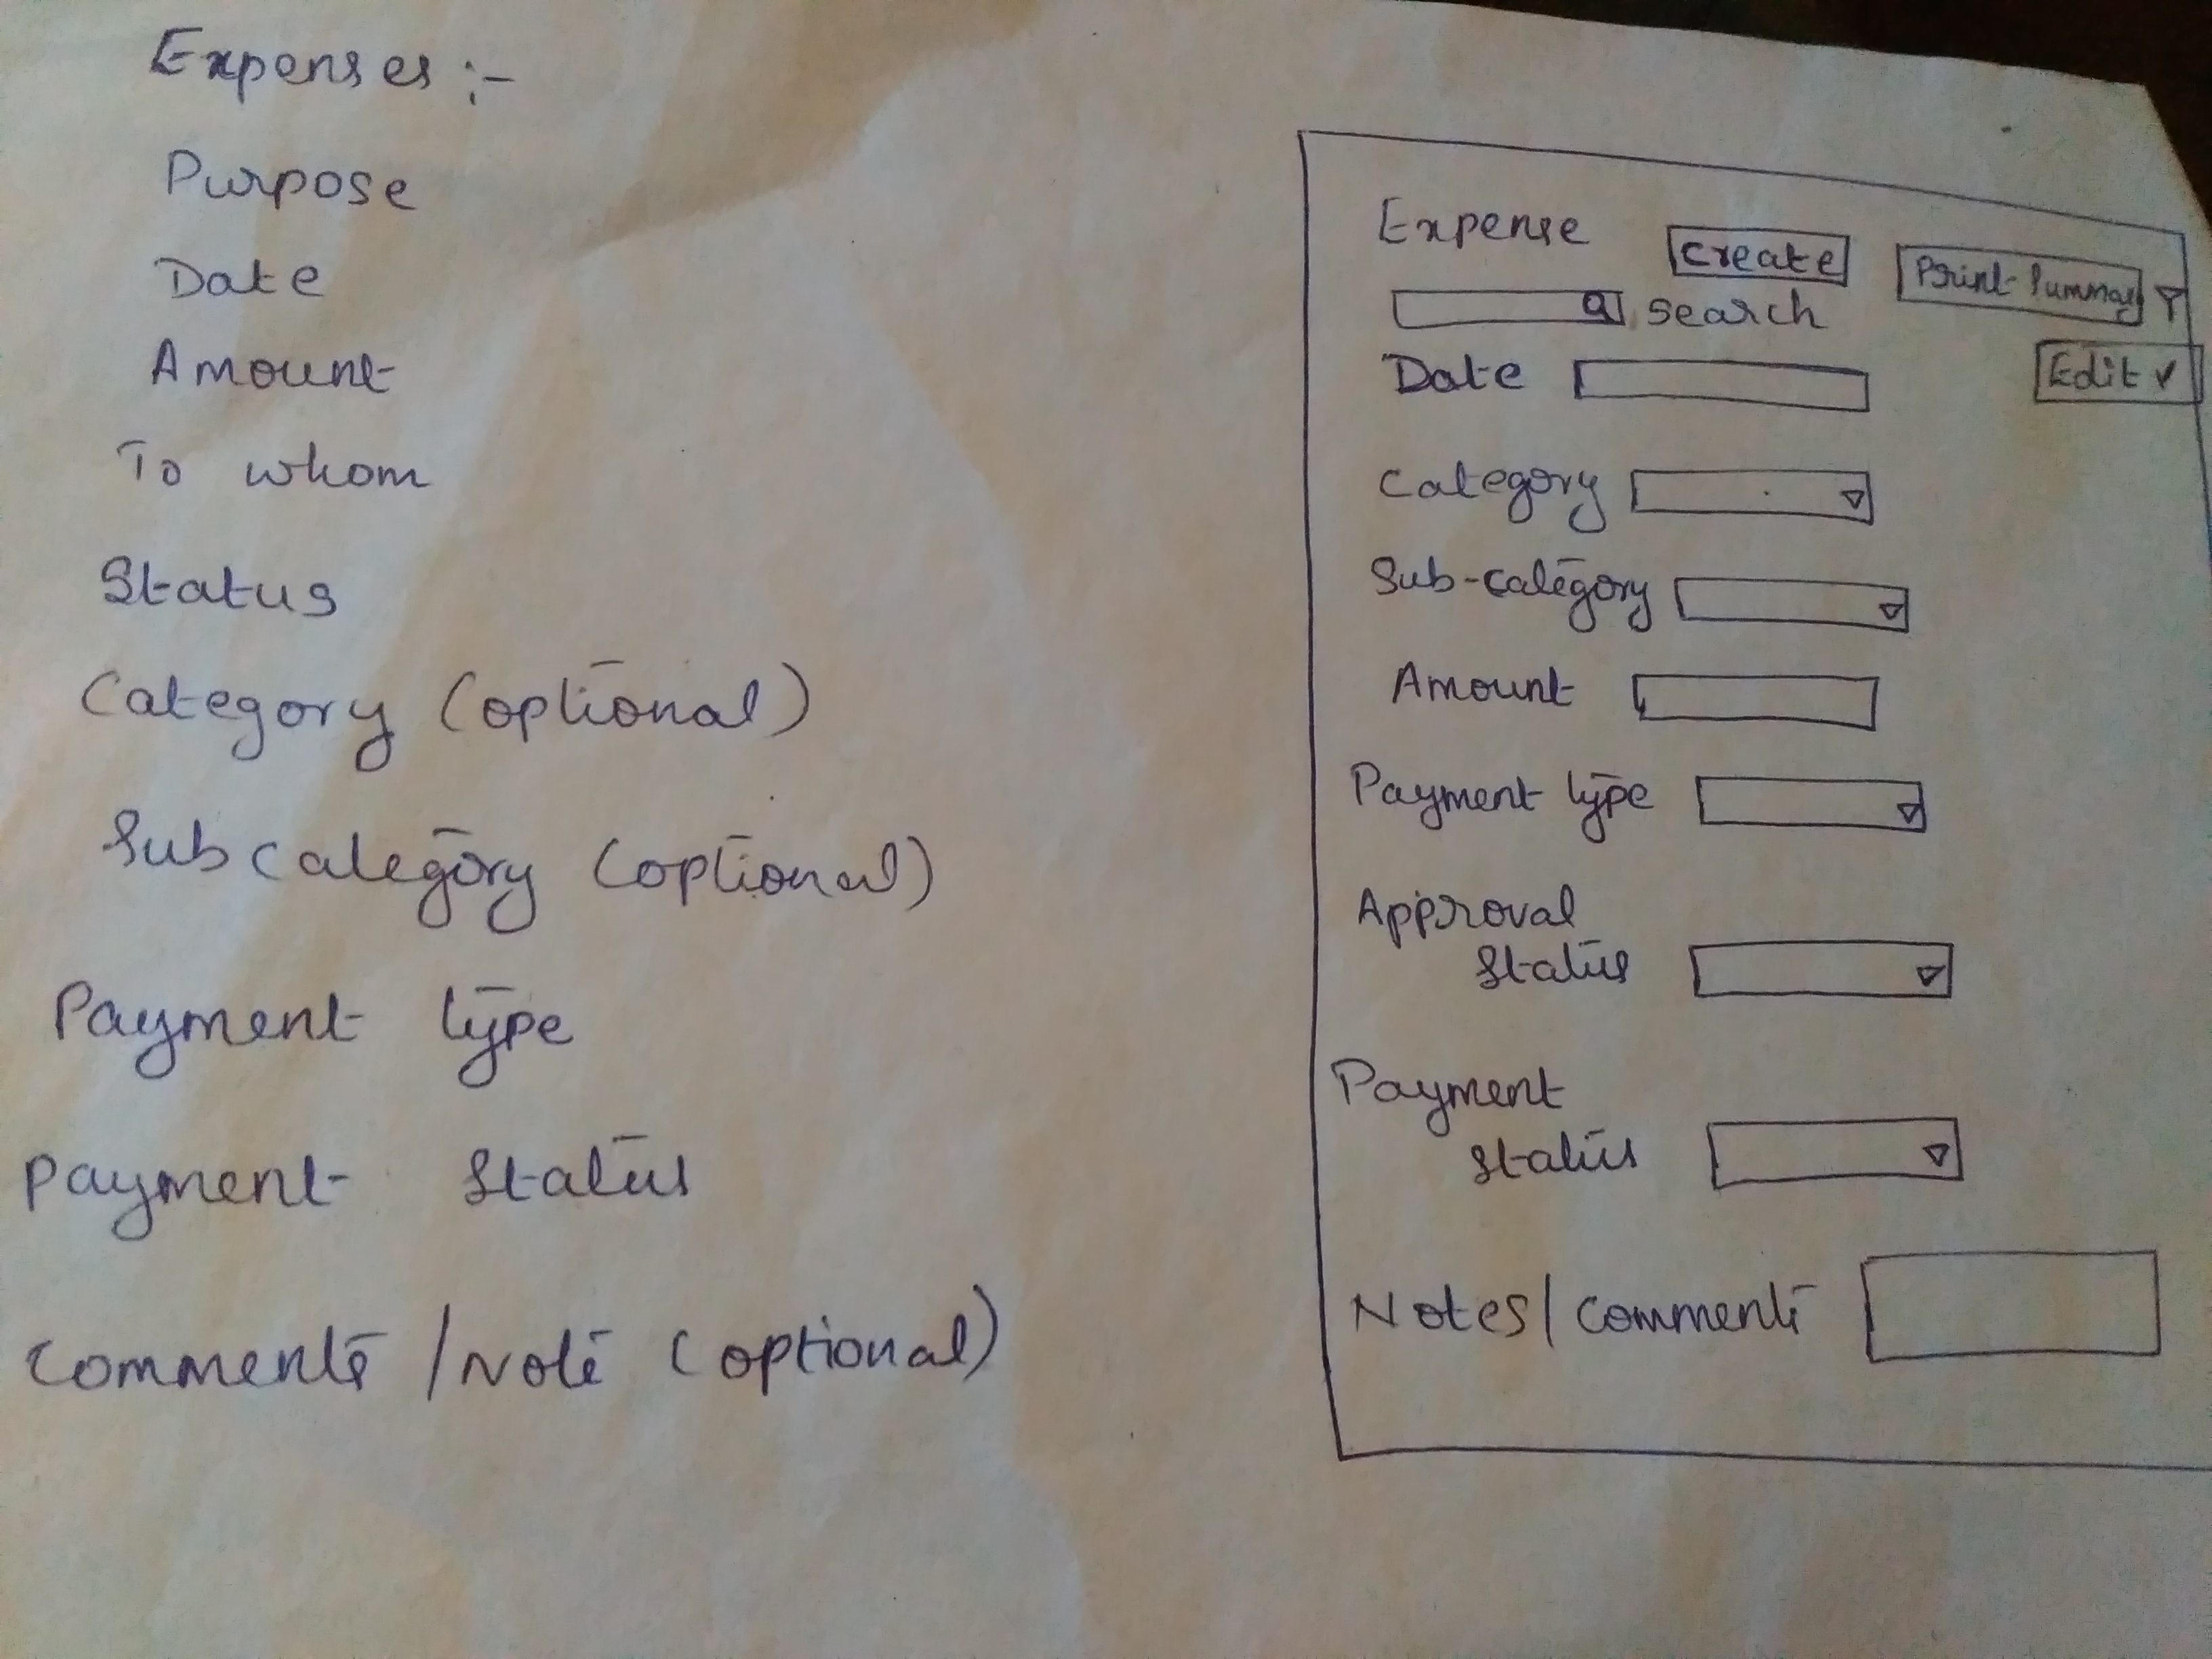 Expenses :-
Purpose
Date
Amount
To whom
Status
Category (optional)
Subcategory (optional)
Payment type
Payment status
Comments / Note (optional)
Expense
Create
Print Summary
Search
Date
Edit
Category
Sub-category
Amount
Payment type
Approval
status
Payment
status
Notes/Comments